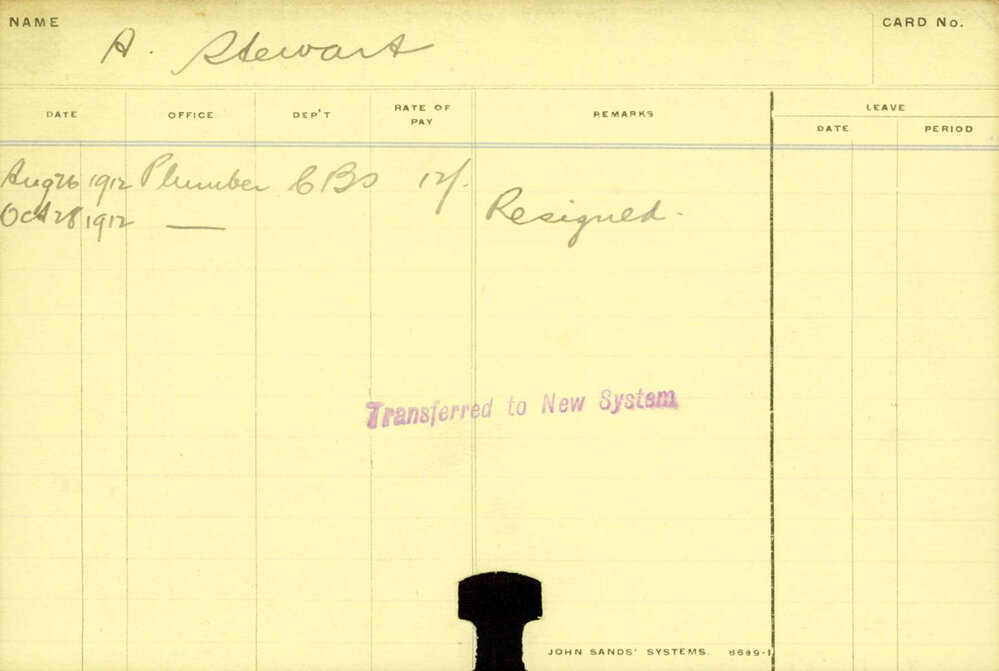 NAME A. Stewart CARD No.
DATE OFFICE DEP'T RATE OF PAY REMARKS LEAVE
DATE PERIOD
Aug 26 1912 Plumber CBS 12/.
Oct 28 1912 — Resigned.
Transferred to New System
JOHN SANDS' SYSTEMS. 8689.1